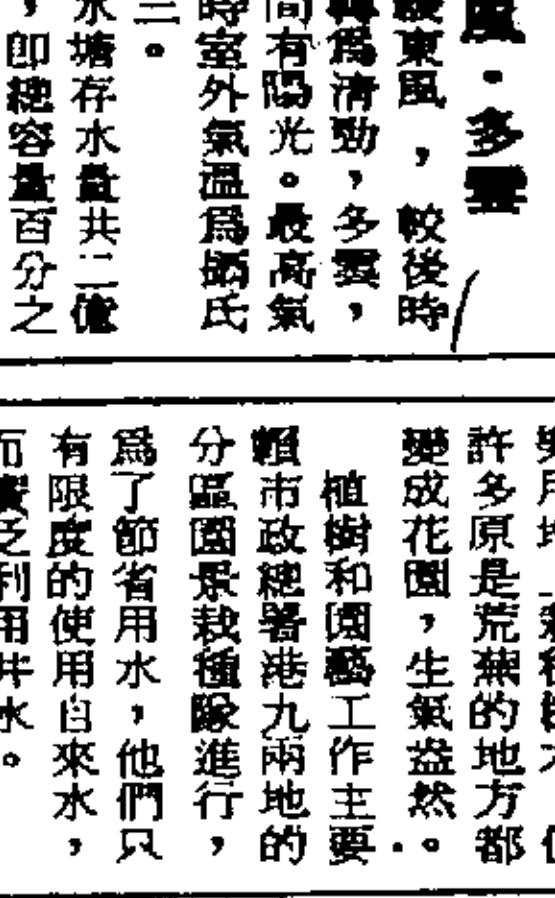 風·多雲
緩東風，較後時
轉爲清勁，多雲，
間有陽光。最高氣
時室外氣溫爲攝氏
三。
水塘存水量共二億
，即總容量百分之
許多原是荒蕪的地方都
變成花園，生氣盎然。
植樹和園藝工作主要
賴市政總署港九兩地的
分區園景栽種隊進行，
爲了節省用水，他們只
有限度的使用自來水，
而廣泛利用井水。